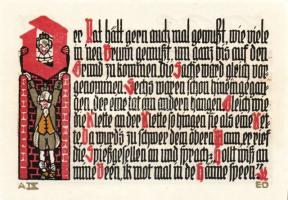 Der Rat hätt geern auch mal gewußt, wie viele
in nen Brunn gewußt, um ganz bis auf den
Grund zu kommen. die Sache ward gleich vor-
genommen. Sechs waren schon hineingegan-
gen, der eine tat am andern hangen. Gleich wie
die Klette an der Klette so hingen sie als eine Ket-
te. Da wurds zu schwer dem obern Mann, er rief
die Spießgesellen an und sprach: Hollt wiß an
mine Been, ik mot mal in de Hänne speen.
A IX
EO